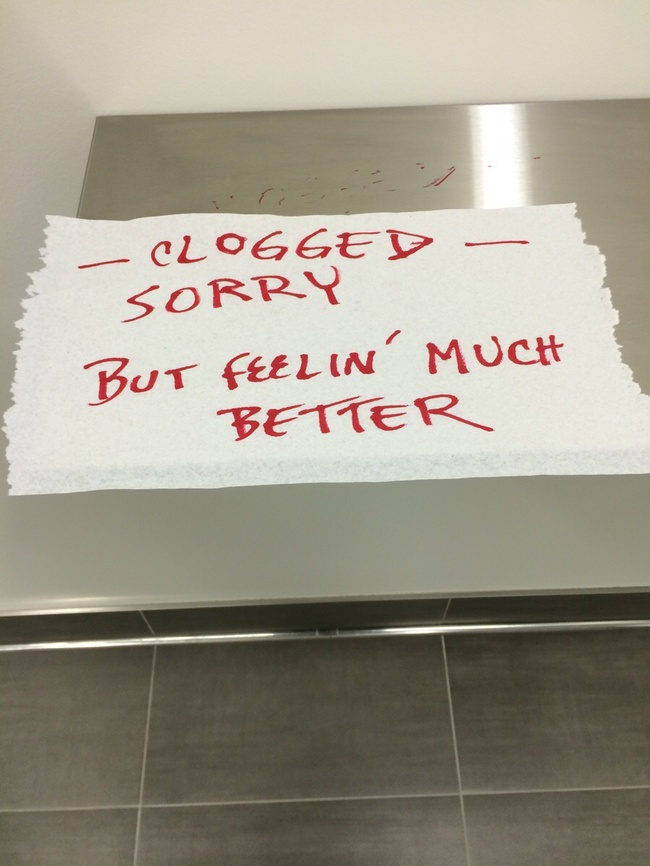 — CLOGGED —
SORRY
BUT FEELIN' MUCH
BETTER